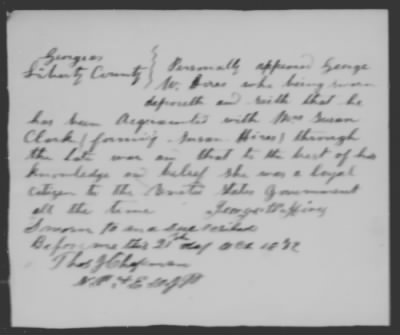 Georgia
Liberty County } Personally appeard George
W. Hires who being sworn
deposeth and saith that he
has been Acquainted with Mrs Susan
Clark (forming Susan Hires) through
the late war an that to the best of his
knowledge and belief she was a loyal
citizen to the United States Government
all the time George W Hires
Sworn to and Subscribed
Before me this 21st day Oct 1872
Thos J Chapman
N.P.